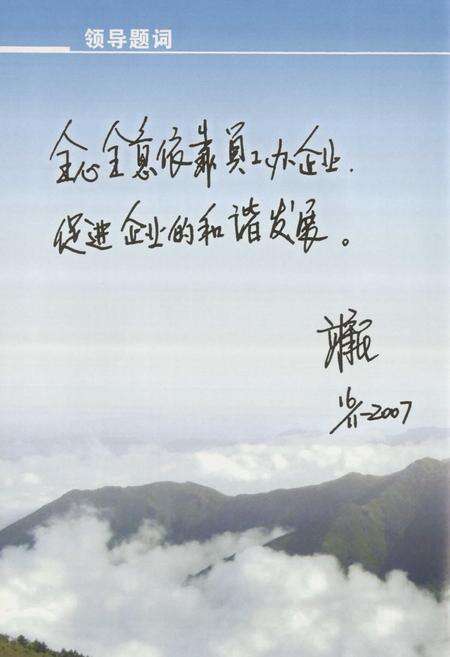 领导题词
全心全意依靠员工办企业.
促进企业的和谐发展。
16/11-2007